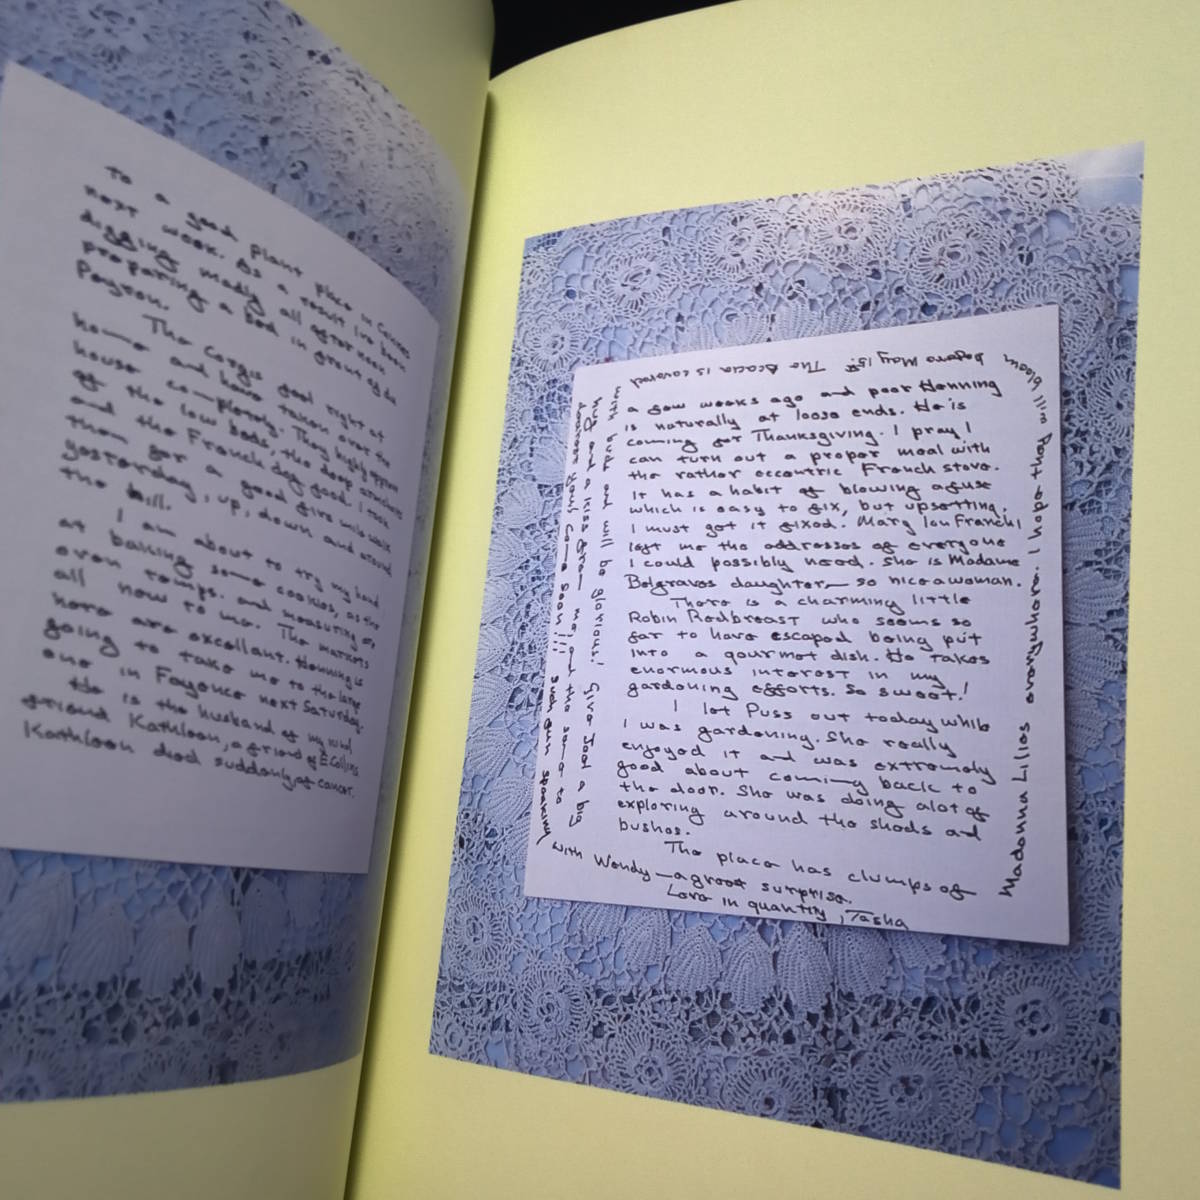 To a good plant place in Cannes
next week. As a result ive been
digging madly all afternoon
preparing a bed in front of the
Peyron.
The Corgis feel right at
home and have taken over the
house completely. They highly approve
of the low beds, the deep armchairs
and the French dog food. I took
them for a good five mile walk
yesterday, up, down and around
the hill.
I am about to try my hand
at baking some cookies, as the
oven temps. and measuring are
all new to me. The markets
here are excellent. Henning is
going to take me to the large
one in Fayence next Saturday.
He is the husband of my kind
friend Kathleen, a friend of E. Collins
Kathleen died suddenly, of cancer.
a few weeks ago and poor Henning
is naturally at loose ends. He is
coming for Thanksgiving. I pray I
can turn out a proper meal with
the rather eccentric French stove.
It has a habit of blowing a fuse
which is easy to fix, but upsetting.
I must get it fixed. Mary Lou Franchi
left me the addresses of everyone
I could possibly need. She is Madame
Belgraves daughter — so nice a woman.
There is a charming little
Robin Redbreast who seems so
far to have escaped being put
into a gourmet dish. He takes
enormous interest in my
gardening efforts. So sweet!
I let Puss out today while
I was gardening. She really
enjoyed it and was extremely
good about coming back to
the door. She was doing alot of
exploring around the sheds and
bushes.
The place has clumps of
Madonna Lilies everywhere. I hope they will bloom
before May 15th. The Acacia is covered
with buds and will be glorious! Give Joel a big
hug and a kiss from me, and the same to
dearest you! Come soon!!! Such fun speaking
with Wendy — a great surprise.
Love in quantity, Tasha